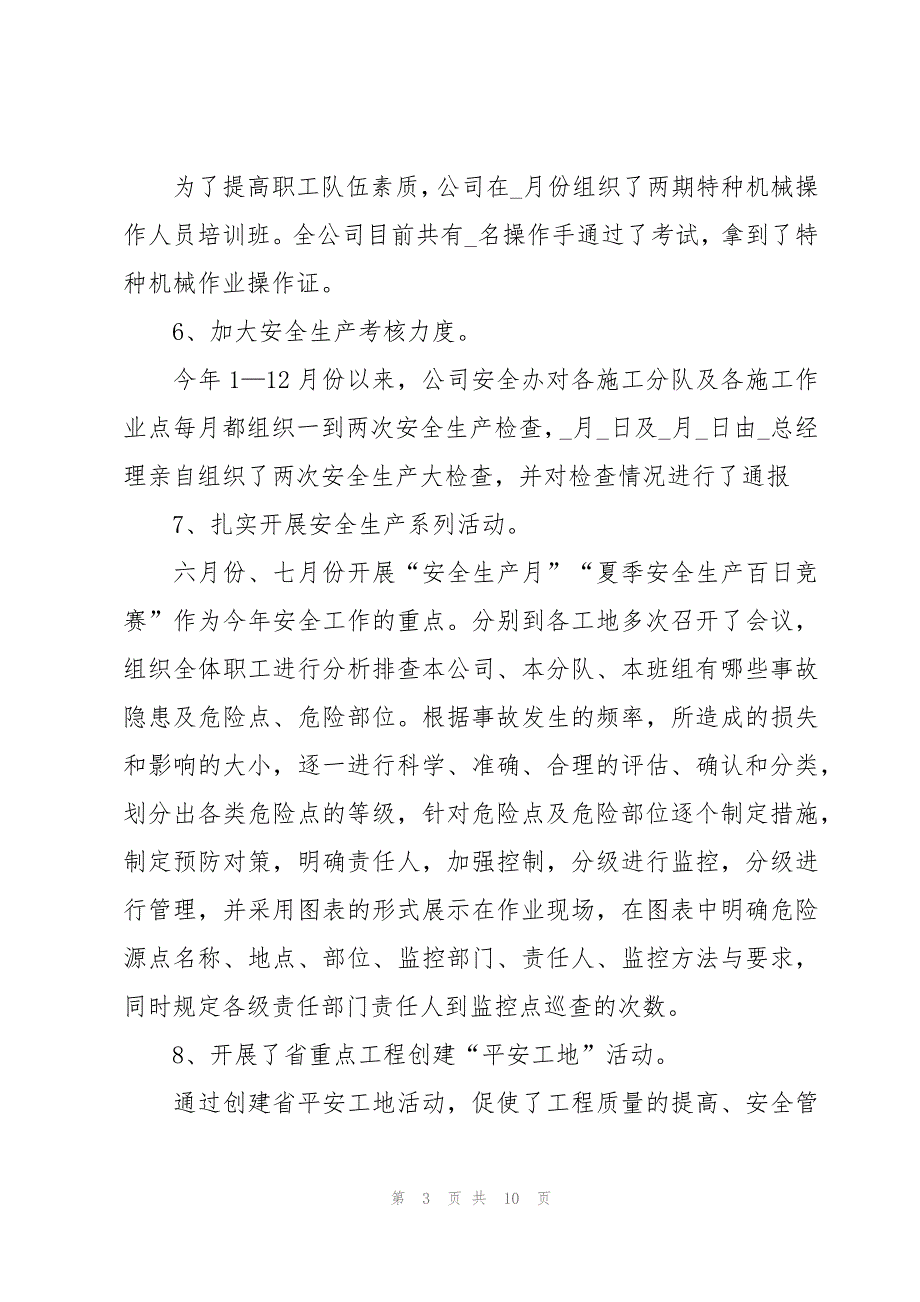 为了提高职工队伍素质,公司在_月份组织了两期特种机械操
作人员培训班。全公司目前共有_名操作手通过了考试,拿到了特
种机械作业操作证。
6、加大安全生产考核力度。
今年 1—12 月份以来，公司安全办对各施工分队及各施工作
业点每月都组织一到两次安全生产检查,_月_日及_月_日由_总经
理亲自组织了两次安全生产大检查，并对检查情况进行了通报
7、扎实开展安全生产系列活动。
六月份、七月份开展“安全生产月”“夏季安全生产百日竞
赛”作为今年安全工作的重点。分别到各工地多次召开了会议，
组织全体职工进行分析排查本公司、本分队、本班组有哪些事故
隐患及危险点、危险部位。根据事故发生的频率，所造成的损失
和影响的大小，逐一进行科学、准确、合理的评估、确认和分类，
划分出各类危险点的等级，针对危险点及危险部位逐个制定措施，
制定预防对策，明确责任人，加强控制，分级进行监控，分级进
行管理，并采用图表的形式展示在作业现场，在图表中明确危险
源点名称、地点、部位、监控部门、责任人、监控方法与要求，
同时规定各级责任部门责任人到监控点巡查的次数。
8、开展了省重点工程创建“平安工地”活动。
通过创建省平安工地活动，促使了工程质量的提高、安全管
第 3 页 共 10 页